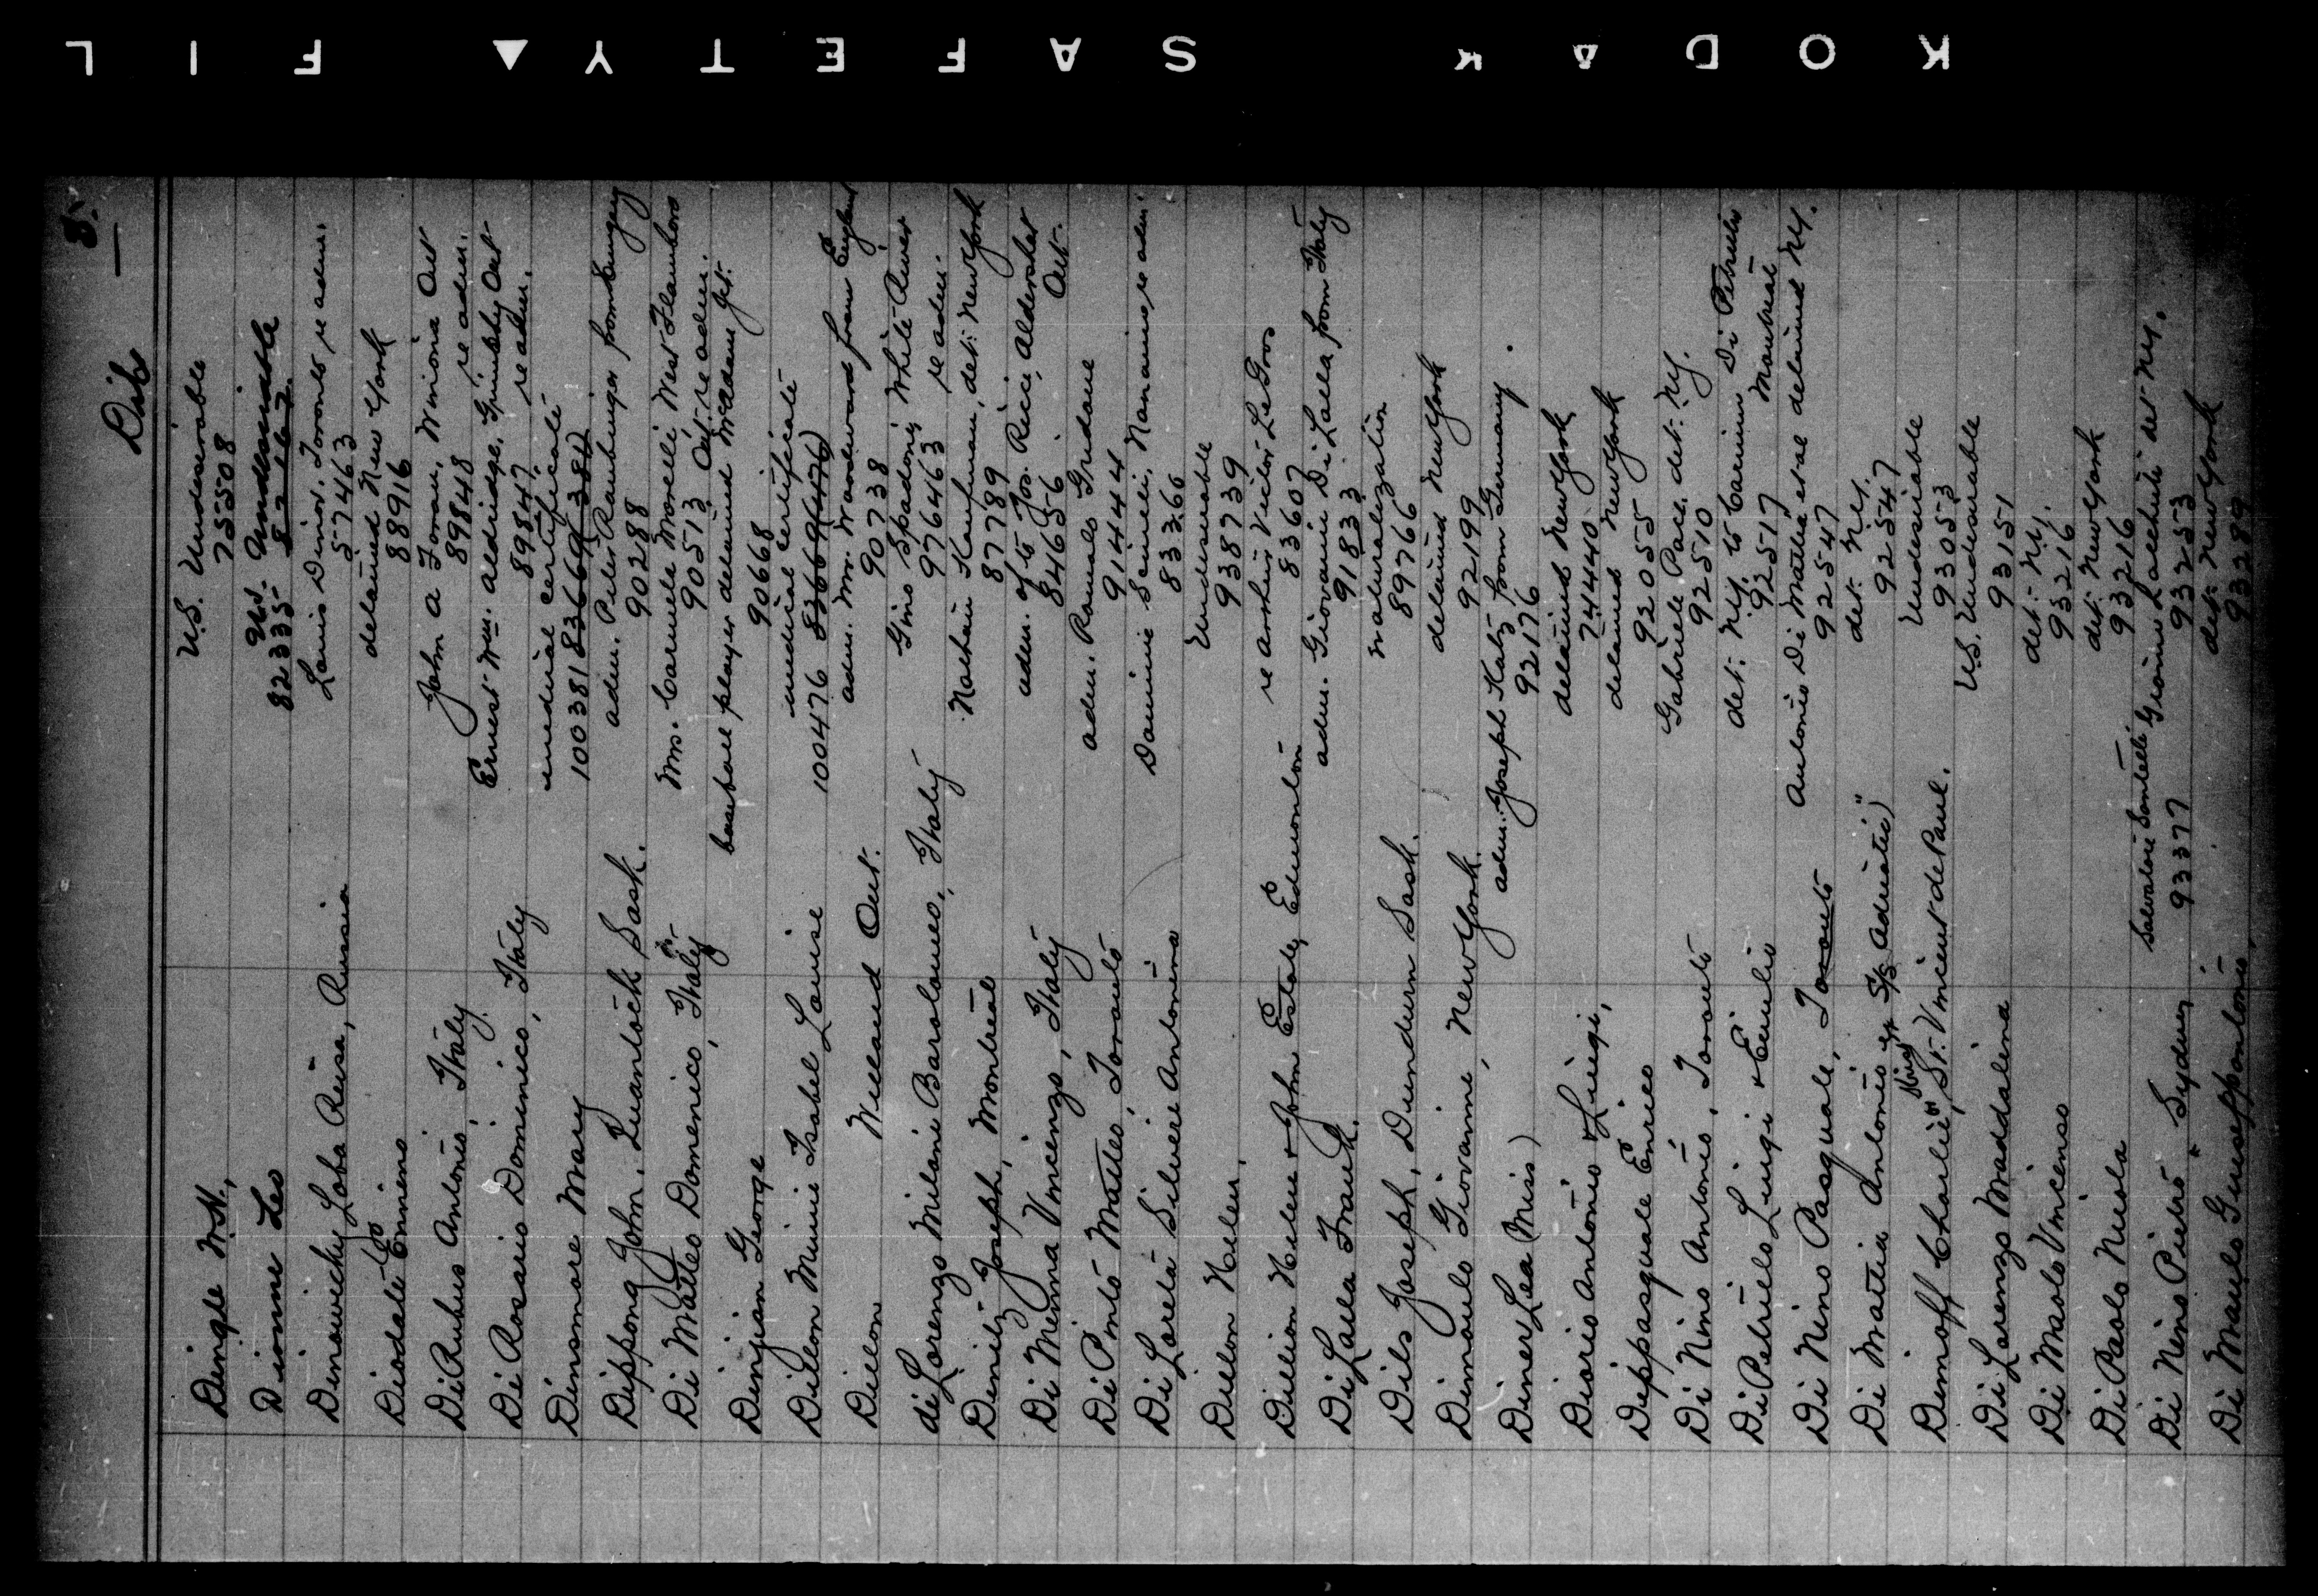 KODAK SAFETY ▲ FIL
8.
Dib
Dingle M.H., U.S. Undesirable
75508
Dionne Leo U.S. Undesirable
82335 82167
Dinowicky Loba Reisa, Russia Louis Dinor, Toronto re adm.
57463
Diodate Enniens detained New York
88916
Di Rubus Antonio, Italy John A Foran, Winona Ont
89848 re adm.
Di Rosario Dominico, Italy Ernest Wm. Aldridge, Grimsby Ont
89847 re adm.
Dinsmore Mary medical certificate
100381 836669(384)
Dippong John, Quantock Sask. adm. Peter Raubinger from Hungary
90288
Di Matteo Domenico, Italy Mrs. Carmela Morelli West Flamboro
90513 Ont. re adm.
Dinjian George baseball player detained McAdam Jct.
90668
Dillon Minnie Isabel Louise medical certificate
100476 836669(476)
Dillon Welland Ont. adm. Mr. Woodward from England
90738
di Lorenzo Milani Barolomeo, Italy Gino Spadoni White River
976463 re adm.
Dimitz Joseph, Montreal Nathan Kaufman, det. New York
87789
Di Menna Vincenzo, Italy adm. of to Jos. Ricci, Aldershot
84656 Ont.
Di Pinto Matteo, Toronto adm. Romolo Grudane
91444
Di Loreta Silverie Antonina Dominic Scimeli, Nanaimo re adm.
83366
Dillon Helen, Undesirable
938739
Dillion Helene & John Estate, Edmonton re Arthur Victor LeGros
83607
Di Lalla Frank. adm. Giovanni Di Lalla from Italy
91833
Dils Joseph, Dundurn Sask. naturalization
89766
Dimaulo Giovanni, New York. detained New York
92199
Diner Lea (Miss) adm. Joseph Katz from Germany.
92176
Diorio Antonio & Luigi, detained New York
74440
Dippasquale Enrico detained New York
92055
Di Nino Antonio, Toronto Gabriele Pace, det. N.Y.
92510
Di Petrulo Luigi & Emilio det. N.Y. to Carmino Di Petrulis
92517 Montreal
Di Nino Pasquale, Toronto Antonio Di Mattia et al detained N.Y.
92547
Di Mattia Antonio ex "S/S Adriatic" det. N.Y.
92547
Dimoff Charlie, St. Vincent de Paul. Undesirable
93053
Di Lorenzo Maddalina U.S. Undesirable
93151
Di Maolo Vincenso det. N.Y.
93216
Di Paolo Nicola det. New York
93216
Di Nino Pietro, Sydney Salvatore Santilli, Gionino Lacchuti det N.Y.
93377 93253
Di Maulo Guiseppantonio, det. New York
93289